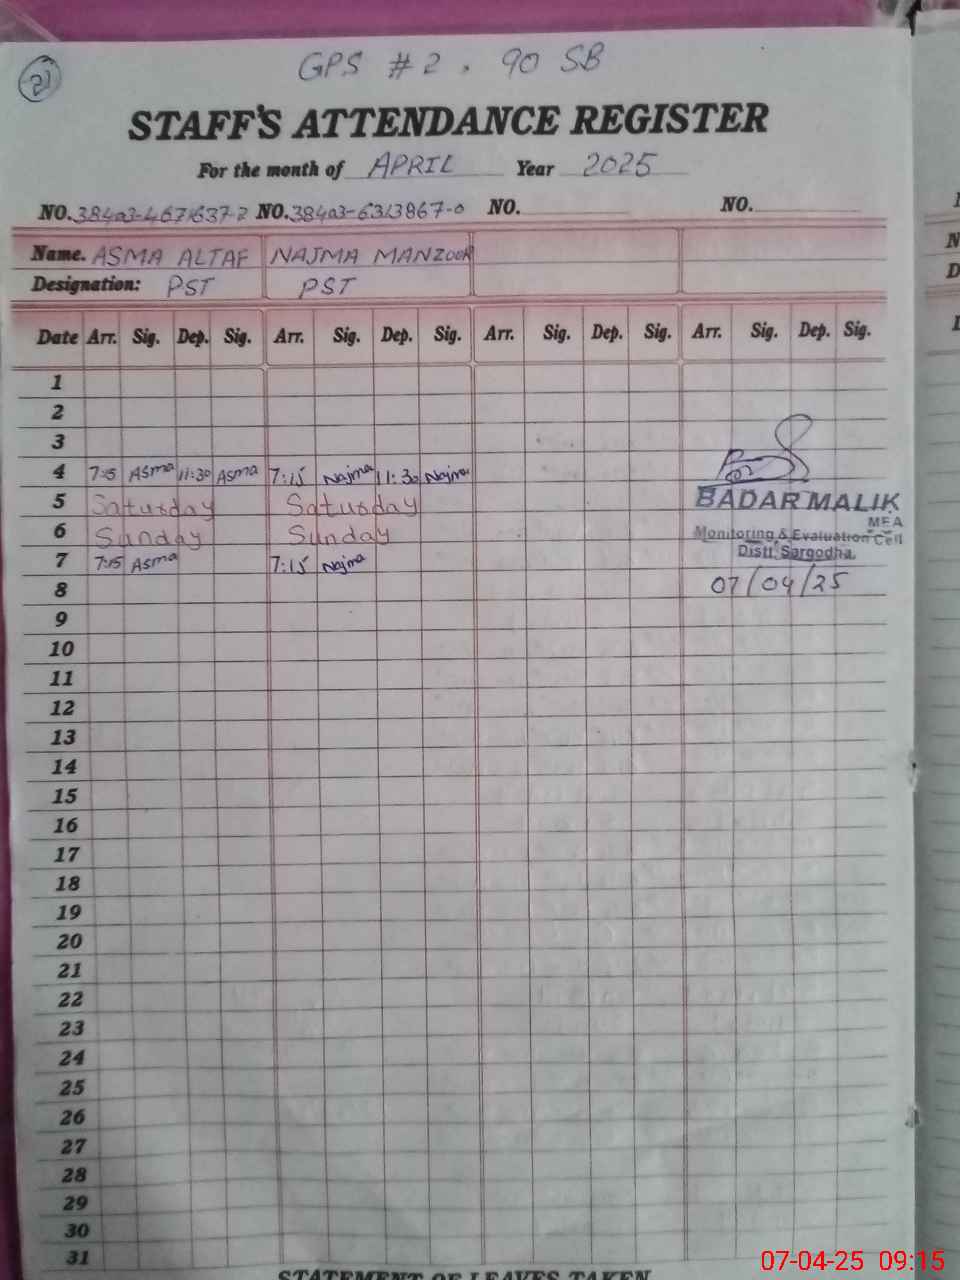 21
GPS # 2 . 90 SB
STAFF'S ATTENDANCE REGISTER
For the month of APRIL Year 2025
NO. 384a3-4671637-2 NO. 384a3-6313867-0 NO. NO.
Name. ASMA ALTAF NAJMA MANZOOR
Designation: PST PST
Date Arr. Sig. Dep. Sig. Arr. Sig. Dep. Sig. Arr. Sig. Dep. Sig. Arr. Sig. Dep. Sig.
1
2
3
4 7:15 Asma 11:30 Asma 7:15 Najma 11:30 Najma
5 Saturday Saturday
BADAR MALIK
MEA
6 Sunday Sunday
Monitoring & Evaluation Cell
Distt. Sargodha.
7 7:15 Asma 7:15 Najma
8
07/04/25
9
10
11
12
13
14
15
16
17
18
19
20
21
22
23
24
25
26
27
28
29
30
31
STATEMENT OF LEAVES TAKEN
07-04-25 09:15